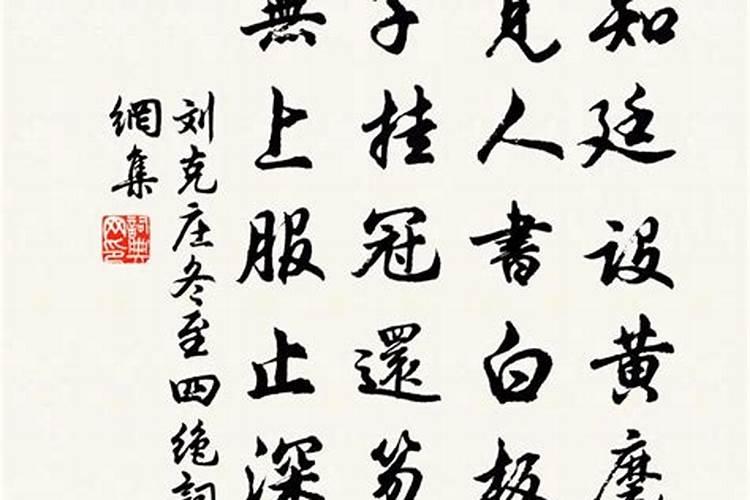 知廷設黄麾
見人書白板
子挂冠還笏
無上服止深
刘克庄冬至四绝詞
網集
詞典網印